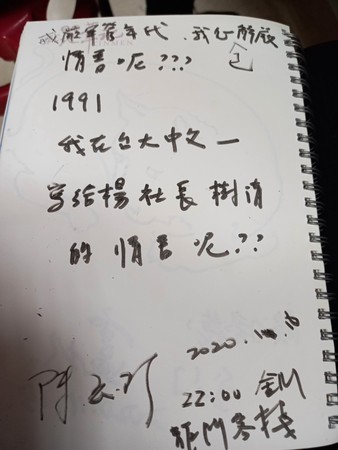 戒嚴軍管年代、我包解嚴
情書呢???
1991
我在台大中文一
写给楊社長樹清
的 情書 呢??
2020.10.10
22:00 金门
龍門客棧